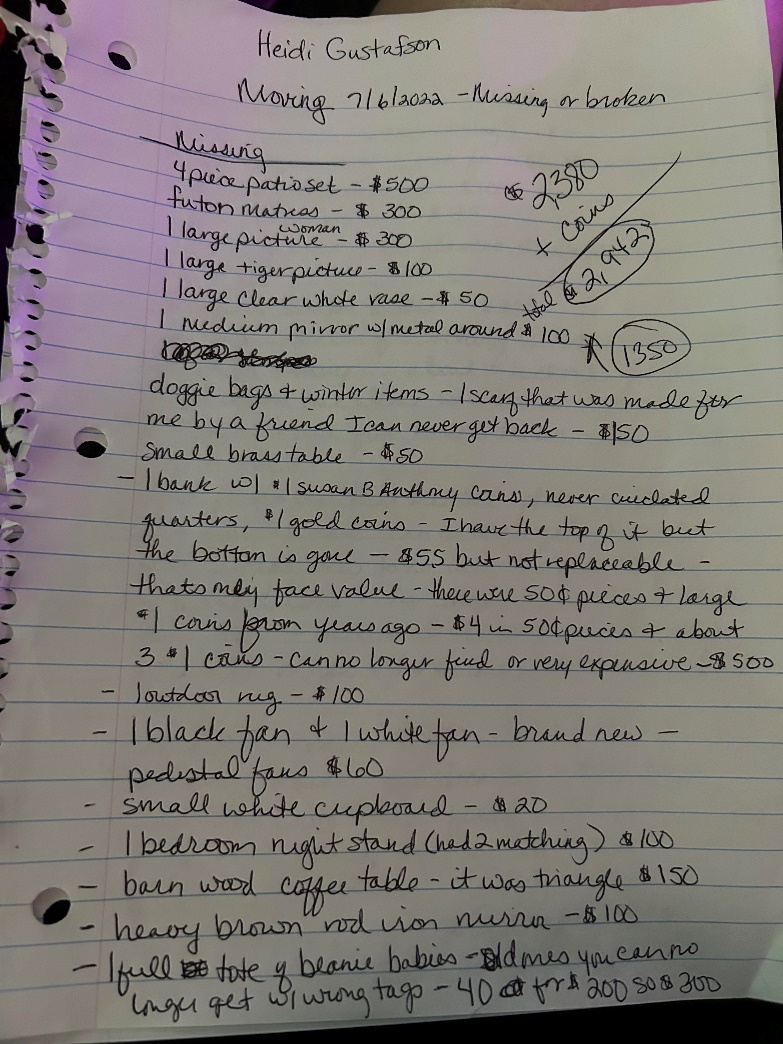 Heidi Gustafson
Moving 7/6/2022 - Missing or broken
Missing
4 piece patio set - $500
futon matress - $ 300
1 large picture woman - $ 300
1 large tiger picture - $100
1 large clear whote vase - $ 50
1 medium mirror w/ metal around $ 100
$ 2,380
+ coins
total $ 2,942
1350
doggie bags + winter items - 1 scarf that was made for
me by a friend I can never get back - $150
small brass table - $50
- 1 bank w/ $1 Susan B Anthony coins, never cuclated
quarters, $1 gold coins - I have the top of it but
the bottom is gone - $55 but not replaceable -
thats only face value - there were 50¢ pieces + large
$1 coins from years ago - $4 in 50¢ pieces + about
3 $1 coins - can no longer find or very expensive - $500
- 1 outdoor rug - $100
- 1 black fan + 1 white fan - brand new -
pedestal fans $60
- small white cupboard - $ 20
- 1 bedroom night stand (had 2 matching) $ 100
- barn wood coffee table - it was triangle $150
- heavy brown rod iron mirror - $ 100
- 1 full tote of beanie babies - old ones you can no
longer get w/ wrong tags - 40 for $ 200 so $ 300